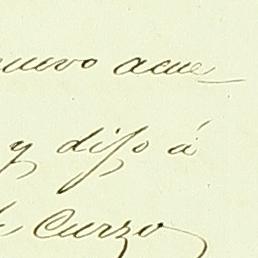 nuevo acue-
y dijo á
Curzo